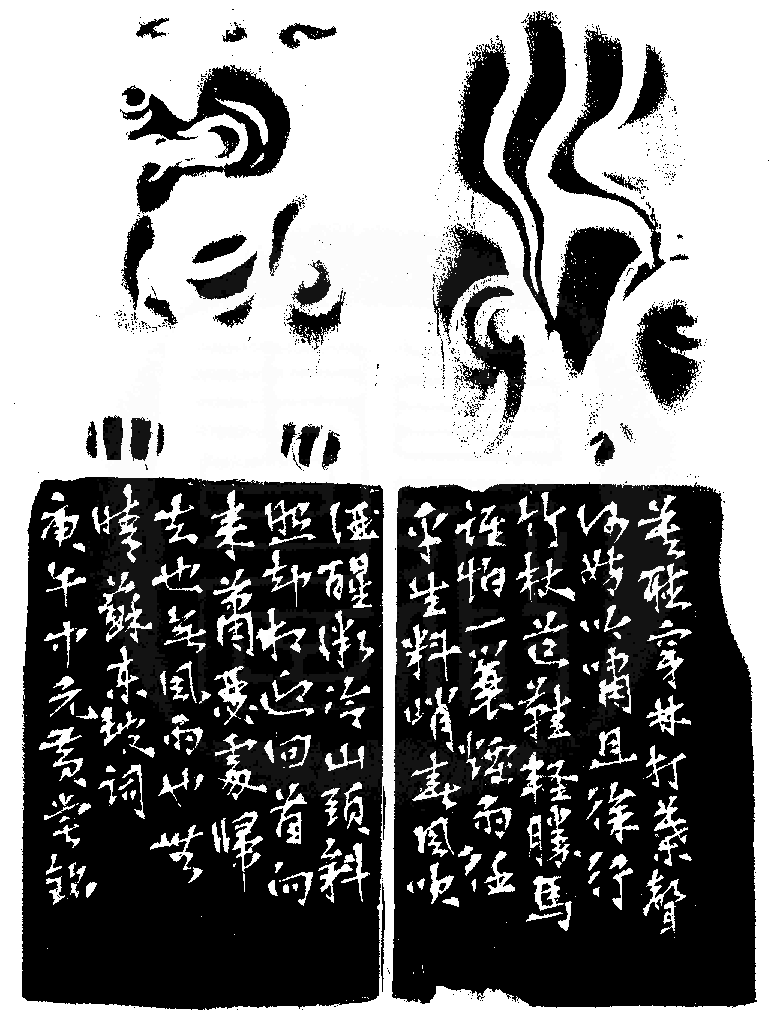 莫聽穿林打葉聲
何妨吟嘯且徐行
竹杖芒鞋輕勝馬
誰怕一蓑煙雨任
平生料峭春風吹
酒醒微冷山頭斜
照却相迎回首向
來蕭瑟處歸
去也無風雨也無
晴蘇東坡詞
庚午中元黃嘗銘